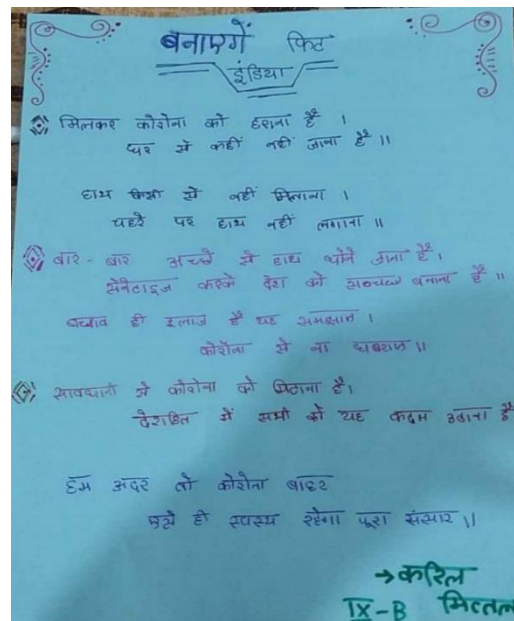 बनाएगें फिट
इंडिया
मिलकर कोरोना को हराना है ।
घर से कहीं नहीं जाना है ॥
हाथ किसी से नहीं मिलाना ।
चहरे पर हाथ नहीं लगाना ॥
बार - बार अच्छे से हाथ धोने जाना है ।
सेनेटाइज करके देश को स्वच्छ बनाना है ॥
बचाव ही इलाज है यह समझाना ।
कोरोना से ना घबराना ॥
सावधानी से कोरोना को मिटाना है।
देशहित में सभी को यह कदम उठाना है
हम अंदर तो कोरोना बाहर
ही स्वस्थ रहेगा पूरा संसार ॥
→ करिल
IX-B मित्तल